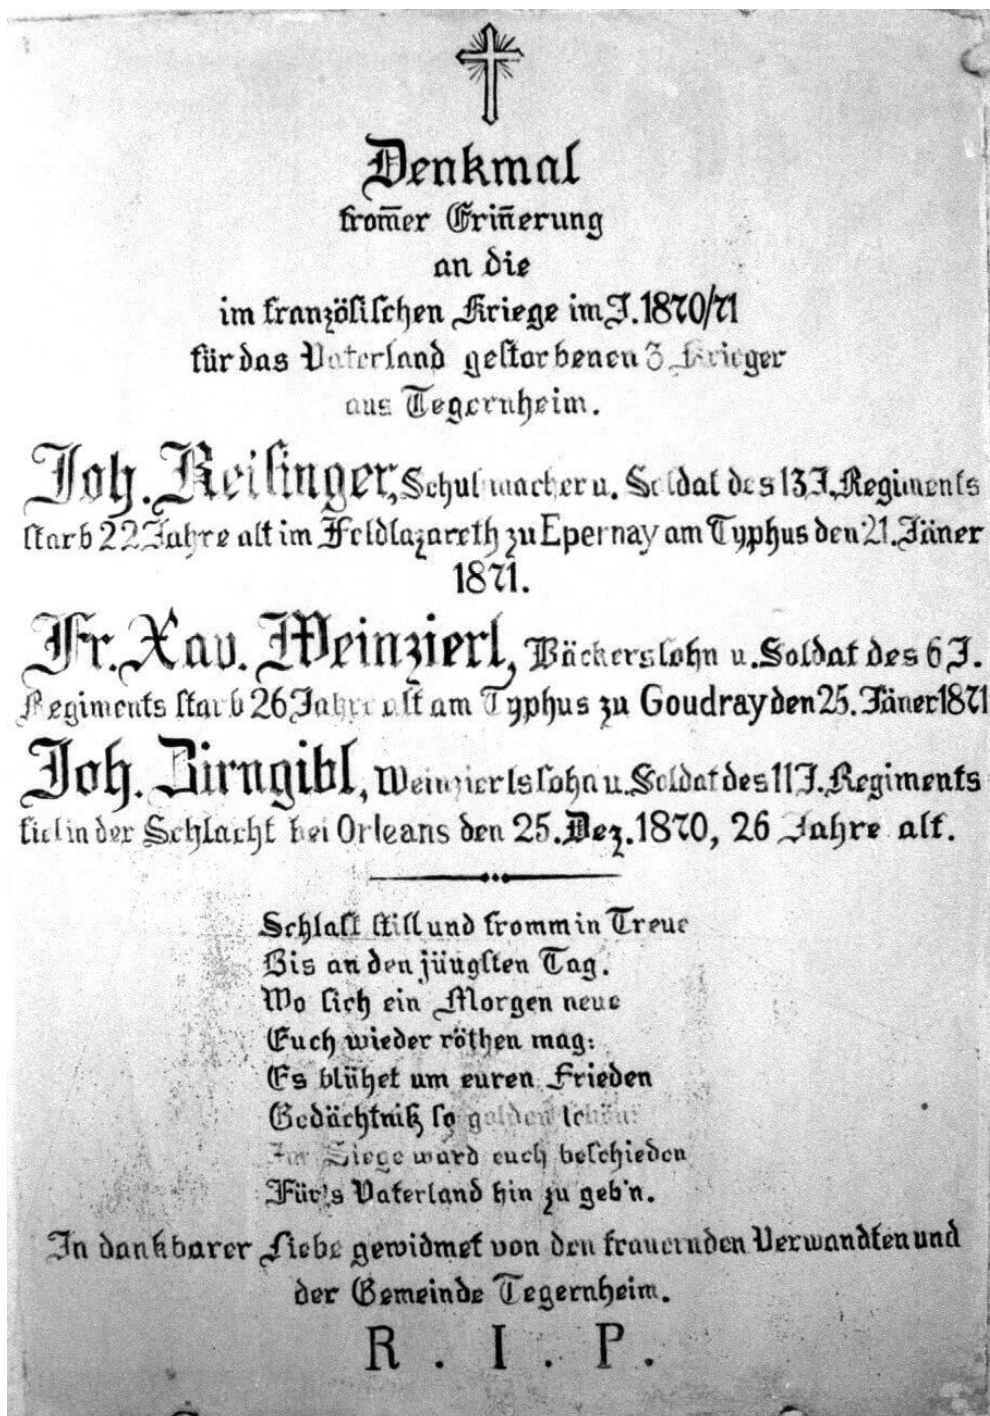 Denkmal
from̅er Erin̅erung
an die
im französischen Kriege im J. 1870/71
für das Vaterland gestorbenen 3 Krieger
aus Tegernheim.
Joh. Reisinger, Schuhmacher u. Soldat des 13 J. Regiments
starb 22 Jahre alt im Feldlazareth zu Epernay am Typhus den 21. Jäner
1871.
Fr. Xav. Weinzierl, Bäckerssohn u. Soldat des 6 J.
Regiments starb 26 Jahre alt am Typhus zu Goudray den 25. Jäner 1871
Joh. Birngibl, Weinzierlssohn u. Soldat des 11 J. Regiments
fiel in der Schlacht bei Orleans den 25. Dez. 1870, 26 Jahre alt.
Schlaft still und fromm in Treue
Bis an den jüngsten Tag.
Wo sich ein Morgen neue
Euch wieder röthen mag:
Es blühet um euren Frieden
Gedächtniß so golden schön:
Im Siege ward euch beschieden
Für's Vaterland hin zu geh'n.
In dankbarer Liebe gewidmet von den trauernden Verwandten und
der Gemeinde Tegernheim.
R . I . P .